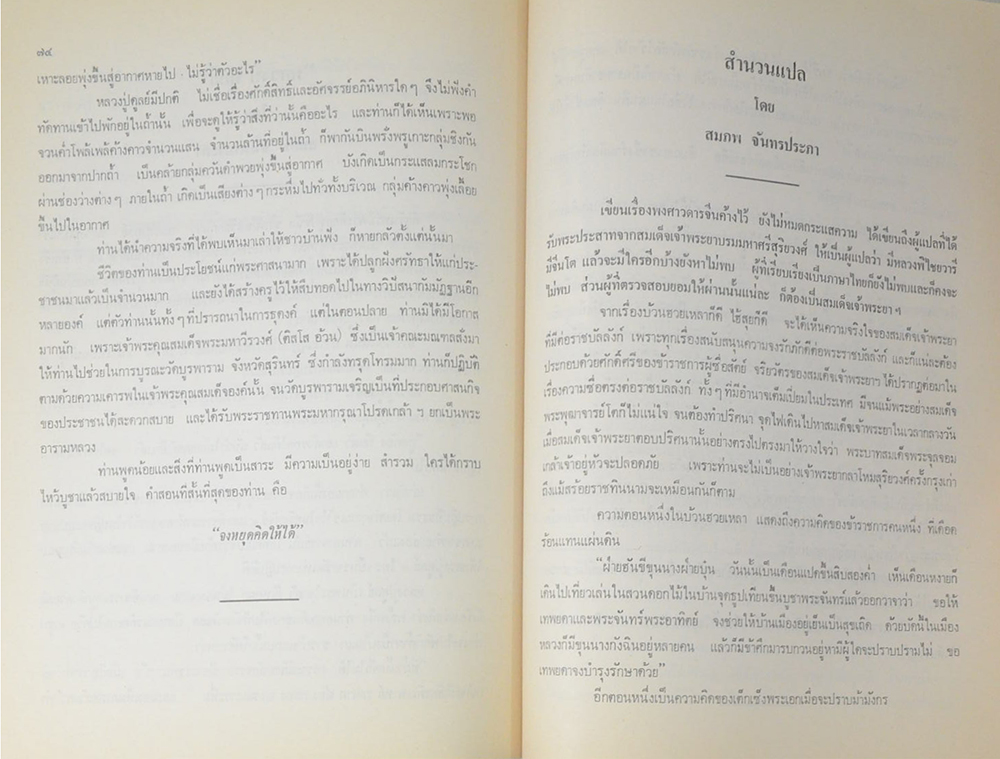 ๗๔
เหาะลอยพุ่งขึ้นสู่อากาศหายไป ไม่รู้ว่าตัวอะไร”
หลวงปู่ดูลย์มีปกติ ไม่เชื่อเรื่องศักดิ์สิทธิ์และอัศจรรย์อภินิหารใด ๆ จึงไม่ฟังคำ
ทัดทานเข้าไปพักอยู่ในถ้ำนั้น เพื่อจะดูให้รู้ว่าสิ่งที่ว่านั้นคืออะไร และท่านก็ได้เห็นเพราะพอ
จวนค่ำโพล้เพล้ค้างคาวจำนวนแสน จำนวนล้านที่อยู่ในถ้ำ ก็พากันบินพรึ่งพรูเกาะกลุ่มชิงกัน
ออกมาจากปากถ้ำ เป็นคล้ายกลุ่มควันดำพวยพุ่งขึ้นสู่อากาศ บังเกิดเป็นกระแสลมกระโชก
ผ่านช่องว่างต่าง ๆ ภายในถ้ำ เกิดเป็นเสียงต่าง ๆ กระหึ่มไปทั่วทั้งบริเวณ กลุ่มค้างคาวพุ่งเลื้อย
ขึ้นไปในอากาศ
ท่านได้นำความจริงที่ได้พบเห็นมาเล่าให้ชาวบ้านฟัง ก็หายกลัวตั้งแต่นั้นมา
ชีวิตของท่านเป็นประโยชน์แก่พระศาสนามาก เพราะได้ปลูกฝังศรัทธาให้แก่ประ-
ชาชนมาแล้วเป็นจำนวนมาก และยังได้สร้างครูไว้ให้สืบทอดไปในทางวิปัสนากัมมัฏฐานอีก
หลายองค์ แต่ตัวท่านนั้นทั้ง ๆ ที่ปรารถนาในการธุดงค์ แต่ในตอนปลาย ท่านมิได้มีโอกาส
มากนัก เพราะเจ้าพระคุณสมเด็จพระมหาวีรวงศ์ (ติสโส อ้วน) ซึ่งเป็นเจ้าคณะมณฑลสั่งมา
ให้ท่านไปช่วยในการบูรณะวัดบูรพาราม จังหวัดสุรินทร์ ซึ่งกำลังทรุดโทรมมาก ท่านก็ปฏิบัติ
ตามด้วยความเคารพในเจ้าพระคุณสมเด็จองค์นั้น จนวัดบูรพารามเจริญเป็นที่ประกอบศาสนกิจ
ของประชาชนได้สะดวกสบาย และได้รับพระราชทานพระมหากรุณาโปรดเกล้า ฯ ยกเป็นพระ
อารามหลวง
ท่านพูดน้อยและสิ่งที่ท่านพูดเป็นสาระ มีความเป็นอยู่ง่าย สำรวม ใครได้กราบ
ไหว้บูชาแล้วสบายใจ คำสอนที่สั้นที่สุดของท่าน คือ
“จงหยุดคิดให้ได้”
สำนวนแปล
โดย
สมภพ จันทรประภา
เขียนเรื่องพงศาวดารจีนค้างไว้ ยังไม่หมดกระแสความ ได้เขียนถึงผู้แปลที่ได้
รับพระประสาทจากสมเด็จเจ้าพระยาบรมมหาศรีสุริยวงศ์ ให้เป็นผู้แปลว่า มีหลวงพิไชยวารี
มีจีนโต แล้วจะมีใครอีกบ้างยังหาไม่พบ ผู้ที่เรียบเรียงเป็นภาษาไทยก็ยังไม่พบและก็คงจะ
ไม่พบ ส่วนผู้ที่ตรวจสอบยอมให้ผ่านนั้นแน่ละ ก็ต้องเป็นสมเด็จเจ้าพระยา ฯ
จากเรื่องบ้วนฮวยเหลาก็ดี ไซ้สุยก็ดี จะได้เห็นความจริงใจของสมเด็จเจ้าพระยา
ที่มีต่อราชบัลลังก์ เพราะทุกเรื่องสนับสนุนความจงรักภักดีต่อพระราชบัลลังก์ และก็แน่ละต้อง
ประกอบด้วยศักดิ์ศรีของข้าราชการผู้ซื่อสัตย์ จริยวัตรของสมเด็จเจ้าพระยาฯ ได้ปรากฏต่อมาใน
เรื่องความซื่อตรงต่อราชบัลลังก์ ทั้ง ๆ ที่มีอำนาจเต็มเปี่ยมในประเทศ มีจนแม้พระอย่างสมเด็จ
พระพุฒาจารย์โตก็ไม่แน่ใจ จนต้องทำปริศนา จุดไฟเดินไปหาสมเด็จเจ้าพระยาในเวลากลางวัน
เมื่อสมเด็จเจ้าพระยาตอบปริศนานั้นอย่างตรงไปตรงมาให้วางใจว่า พระบาทสมเด็จพระจุลจอม
เกล้าเจ้าอยู่หัวจะปลอดภัย เพราะท่านจะไม่เป็นอย่างเจ้าพระยากลาโหมสุริยวงศ์ครั้งกรุงเก่า
ถึงแม้สร้อยราชทินนามจะเหมือนกันก็ตาม
ความตอนหนึ่งในบ้วนฮวยเหลา แสดงถึงความคิดของข้าราชการคนหนึ่ง ที่เดือด
ร้อนแทนแผ่นดิน
“ฝ่ายฮันขีขุนนางฝ่ายบุ๋น วันนั้นเป็นเดือนแปดขึ้นสิบสองค่ำ เห็นเดือนหงายก็
เดินไปเที่ยวเล่นในสวนดอกไม้ในบ้านจุดธูปเทียนขึ้นบูชาพระจันทร์แล้วออกวาจาว่า ขอให้
เทพยดาและพระจันทร์พระอาทิตย์ จงช่วยให้บ้านเมืองอยู่เย็นเป็นสุขเถิด ด้วยบัดนี้ในเมือง
หลวงก็มีขุนนางกังฉินอยู่หลายคน แล้วก็มีข้าศึกมารบกวนอยู่หามีผู้ใดจะปราบปรามไม่ ขอ
เทพยดาจงบำรุงรักษาด้วย”
อีกตอนหนึ่งเป็นความคิดของเต็กเซ็งพระเอกเมื่อจะปราบม้ามังกร